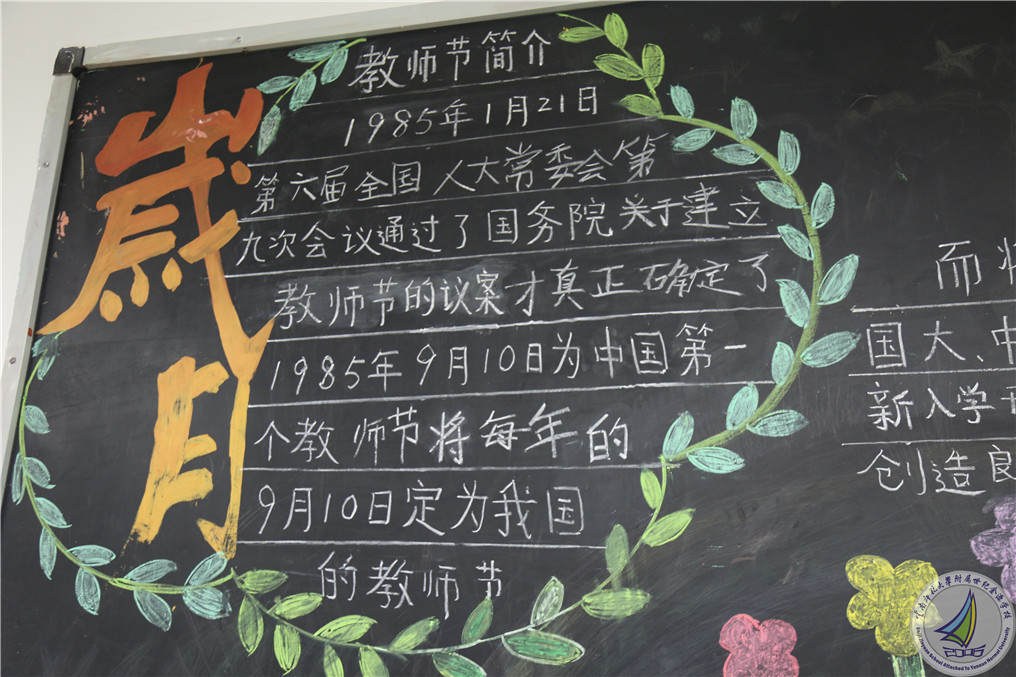 歲月
教师节简介
1985年1月21日
第六届全国人大常委会第
九次会议通过了国务院关于建立
教师节的议案才真正确定了
1985年9月10日为中国第一
个教师节将每年的
9月10日定为我国
的教师节
而将
国大、中
新入学
创造良
学附属世纪金源学校
School Attached To Yunnan Normal University
2006